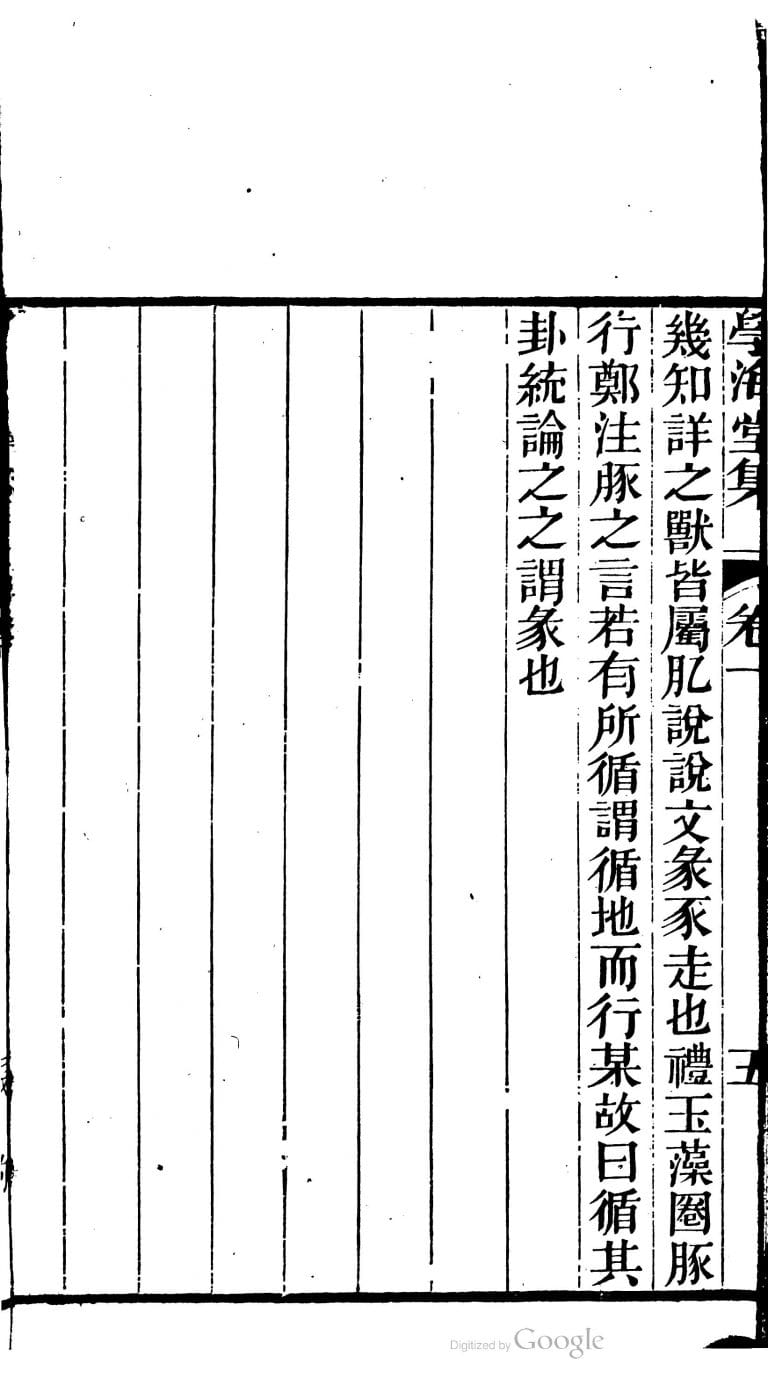 學海堂集 卷一 五
幾知詳之獸皆屬肊說說文彖豕走也禮玉藻圈豚
行鄭注豚之言若有所循謂循地而行某故曰循其
卦統論之之謂彖也
Digitized by Google